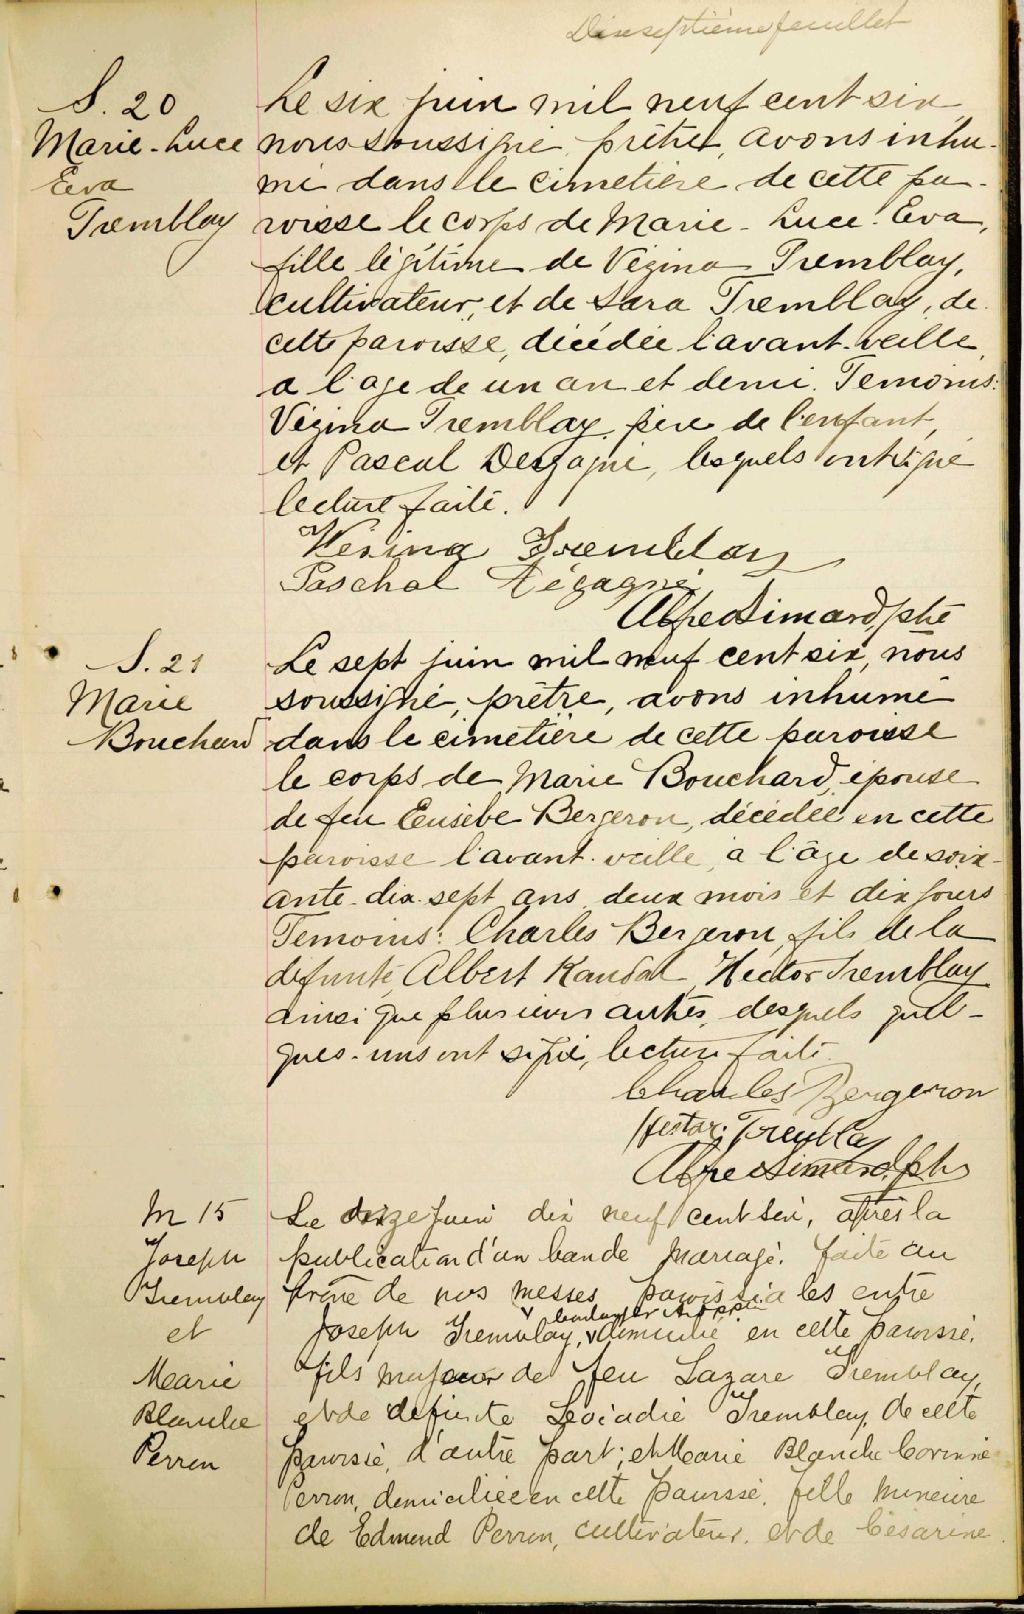 Dixseptième feuillet
S. 20
Marie-Luce
Eva
Tremblay
Le six juin mil neuf cent six,
nous soussigné, prêtre, avons inhu-
mé dans le cimetière de cette pa-
roisse le corps de Marie-Luce-Eva,
fille légitime de Vézina Tremblay,
cultivateur, et de Sara Tremblay, de
cette paroisse, décédée l'avant-veille,
a l'age de un an et demi. Temoins:
Vézina Tremblay, père de l'enfant,
et Pascal Desgagné, lesquels ont signé
lecture faite.
Vézina Tremblay
Paschal Dégagné
Alfred Simard, ptre
S. 21
Marie
Bouchard
Le sept juin mil neuf cent six, nous
soussigné, prêtre, avons inhumé
dans le cimetière de cette paroisse
le corps de Marie Bouchard, épouse
de feu Eusèbe Bergeron, décédée en cette
paroisse l'avant-veille, à l'âge de soix-
ante-dix-sept ans deux mois et dix jours
Temoins: Charles Bergeron, fils de la
défunte, Albert Hector Tremblay
ainsi que plusieurs autres, desquels quel-
ques-uns ont signé, lecture faite.
Charles Bergeron
Hector Tremblay
Alfred Simard, ptre
M 15
Joseph
Tremblay
et
Marie
Blanche
Perron
Le juin dix neuf cent six, après la
publication d'un bande mariage, faite au
prône de nos messes paroissiales entre
boulanger
Joseph Tremblay, domicilié en cette paroisse,
fils majeur de feu Lazare Tremblay,
et de défunte Léocadie Tremblay, de cette
paroisse, d'autre part; et Marie Blanche Corinne
Perron, domiciliée en cette paroisse, fille mineure
de Edmond Perron, cultivateur, et de Césarine